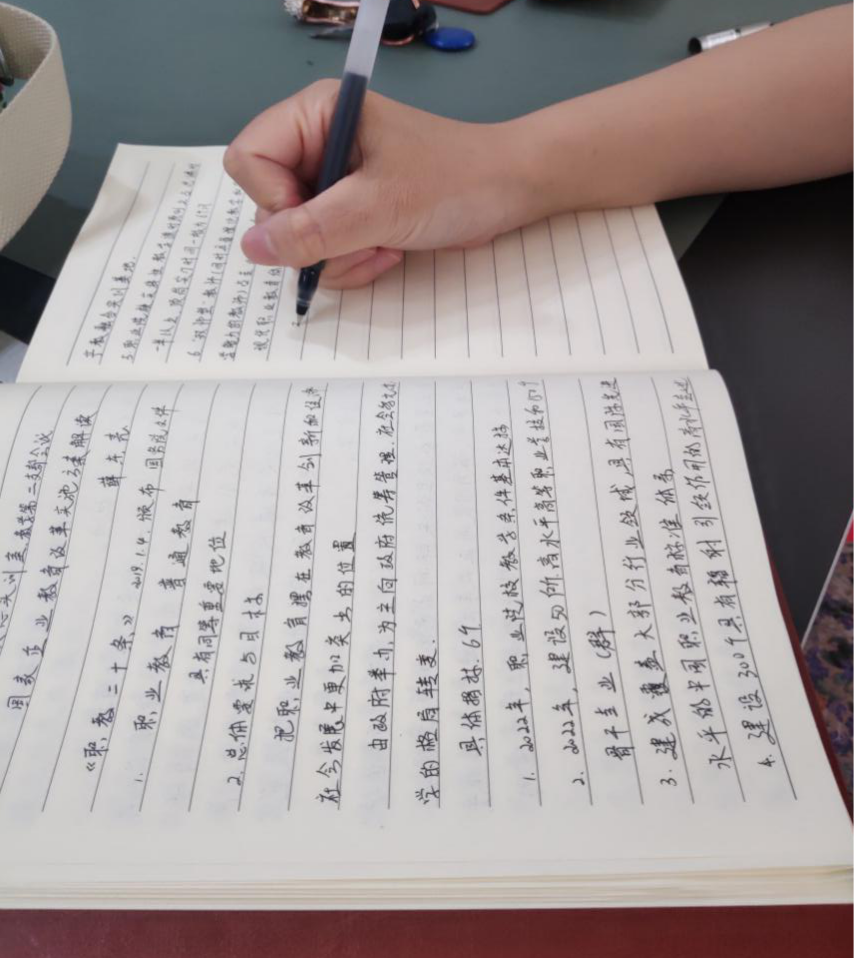 教育第二支部会议
国家职业教育改革实施方案解读
薛东亮
《职教二十条》 2019.1.4. 颁布 国务院文件
1. 职业教育 普通教育
具有同等重要地位
2. 总体要求与目标
把职业教育摆在教育改革创新
社会发展中更加突出的位置
由政府举办为主向政府统筹管理、社会多元办
学的格局转变.
具体指标. 6个
1. 2022年, 职业院校教学条件基本达标
2. 2022年, 建设50所高水平高等职业学校和150个
骨干专业(群)
3. 建成覆盖大部分行业领域,具有国际先进
水平的中国职业教育标准体系
4. 建设300个具有辐射引领作用的高水平专业
子教融合实训基地.
5. 职业院校
6. "双师型"教师(同时具备理论教学和
实践能力的教师)占